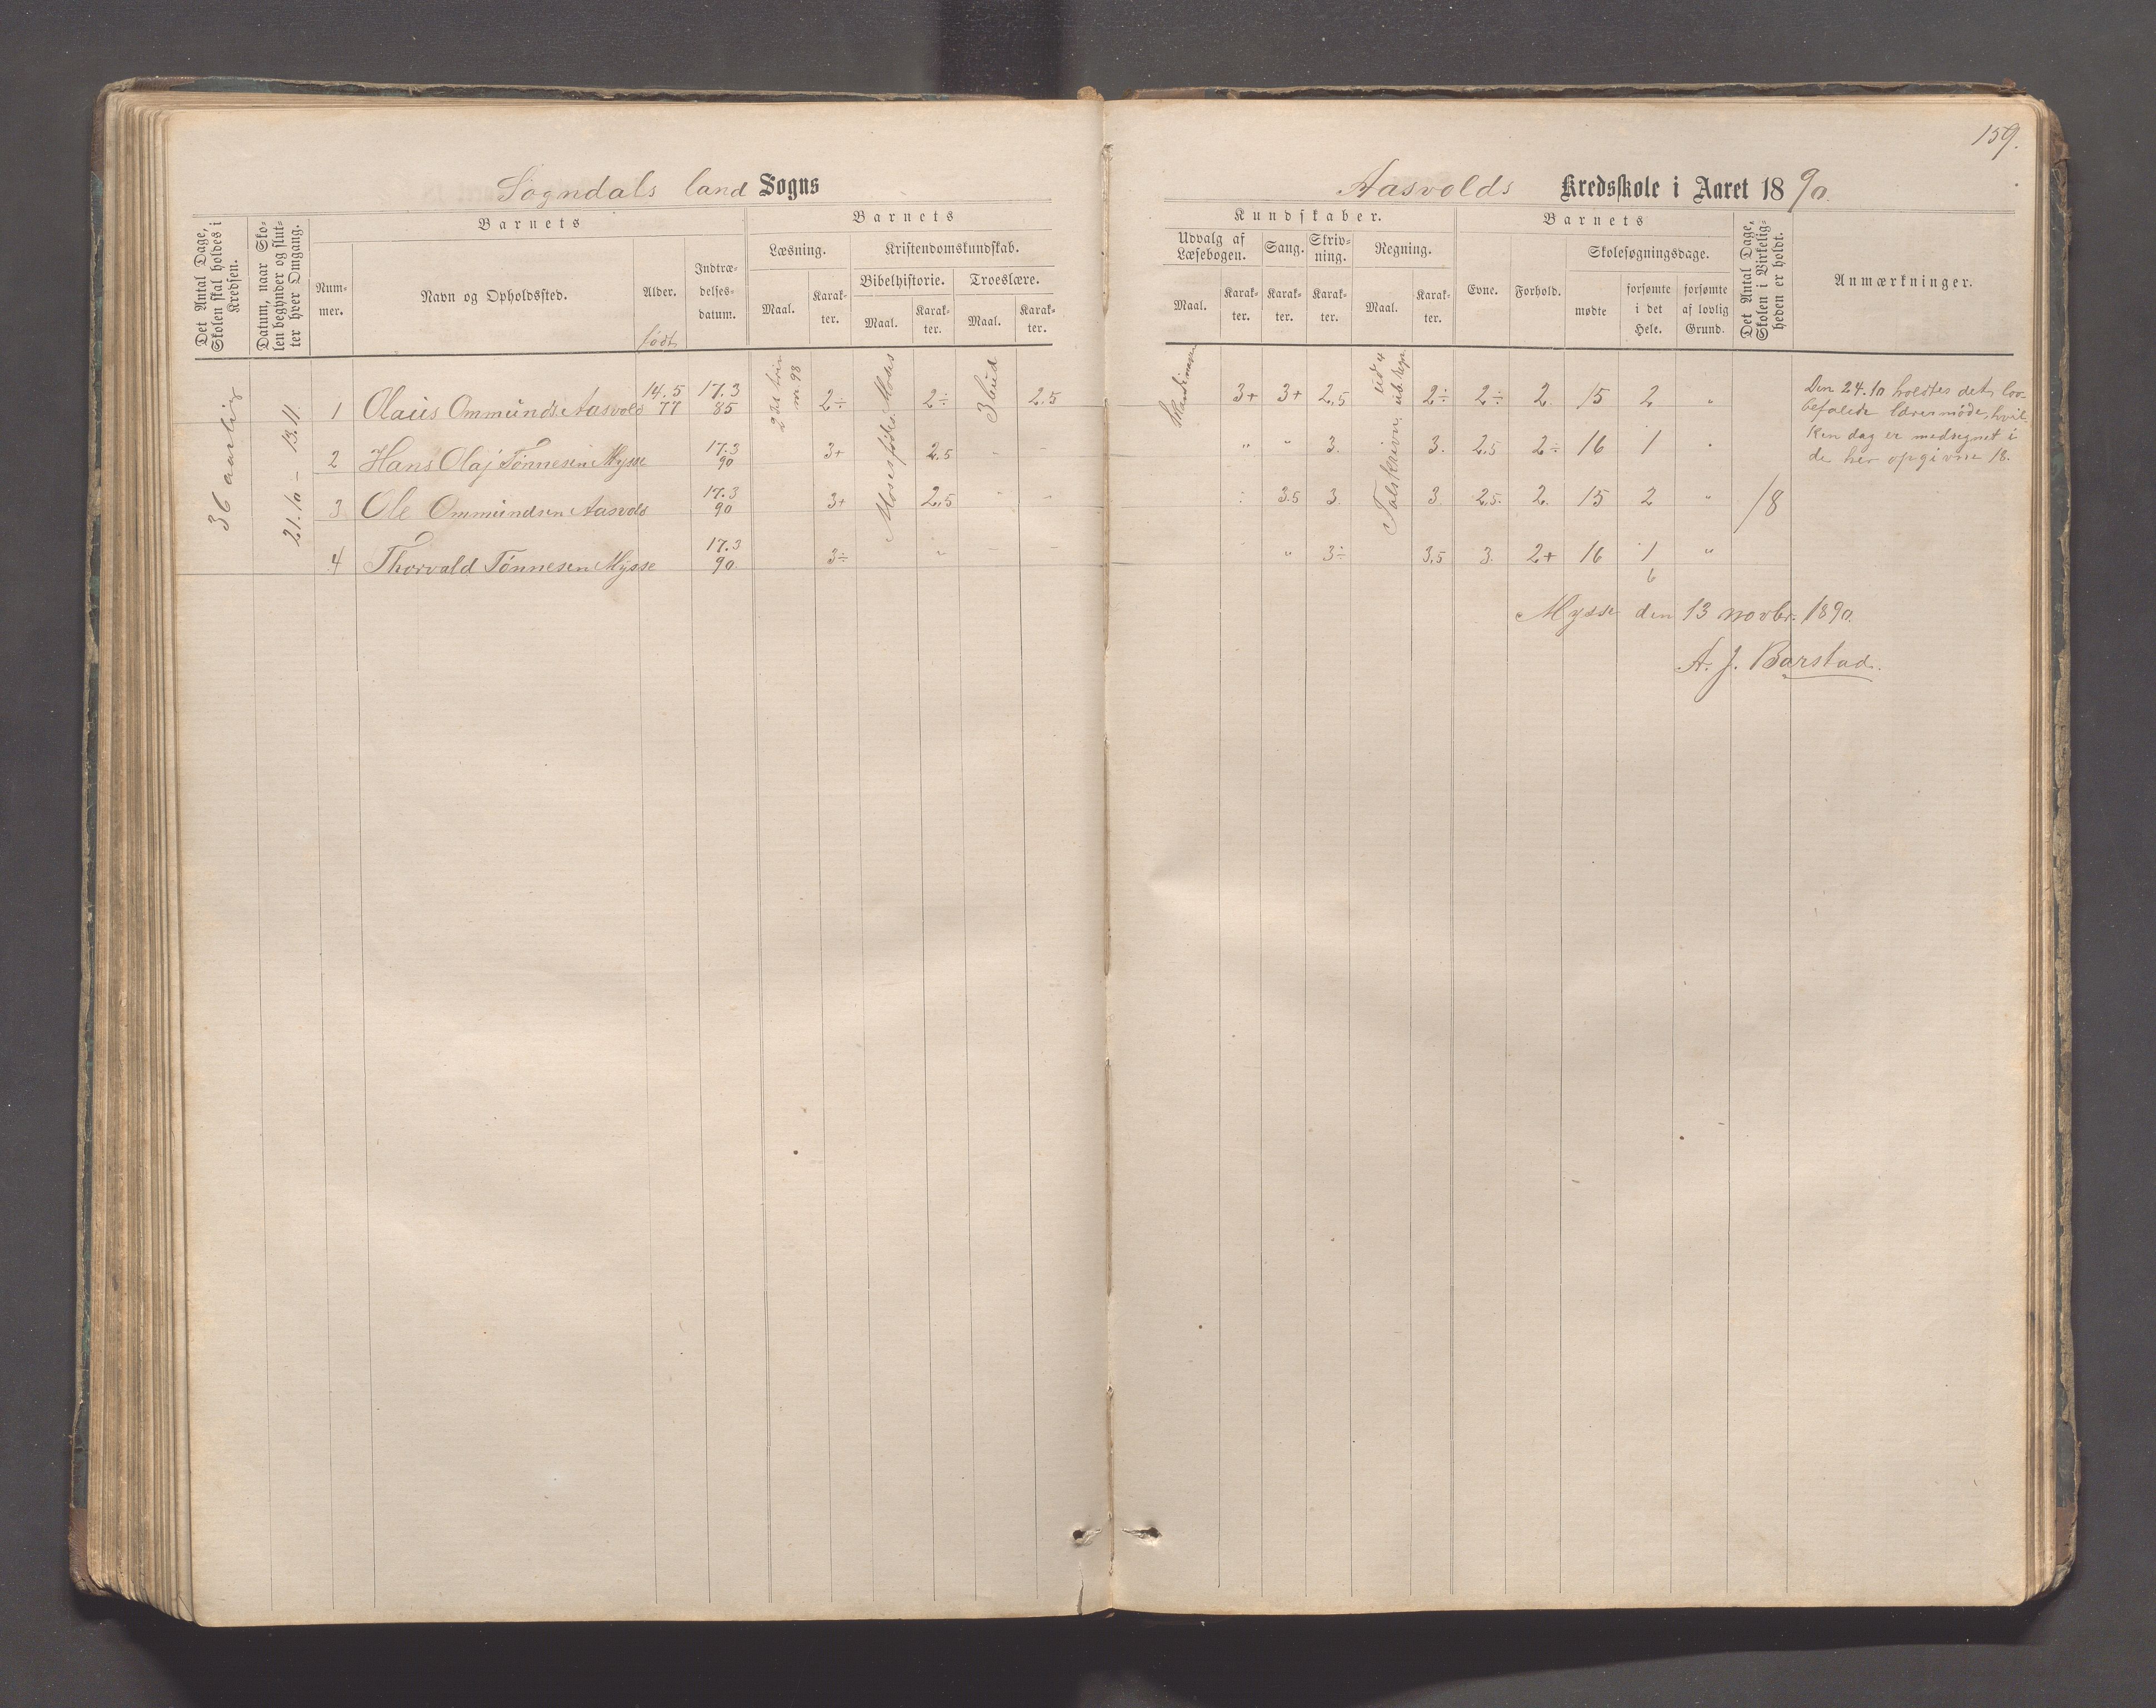 159.
Sogndals land Sogns
Aasvolds Kredsskole i Aaret 1890.
Det Antal Dage, Skolen skal holdes i Kredsen.
Datum, naar Skolen begynder og slutter hver Omgang.
Barnets
Nummer.
Navn og Opholdssted.
Alder.
født
Indtrædelsesdatum.
Barnets
Læsning.
Maal.
Karakter.
Kristendomskundskab.
Bibelhistorie.
Maal.
Karakter.
Troeslære.
Maal.
Karakter.
Kundskaber.
Udvalg af Læsebogen.
Maal.
Karakter.
Sang.
Karakter.
Skrivning.
Karakter.
Regning.
Maal.
Karakter.
Barnets
Evne.
Forhold.
Skolesøgningsdage.
mødte
forsømte i det Hele.
forsømte af lovlig Grund.
Det Antal Dage, Skolen i Virkeligheden er holdt.
Anmærkninger.
36 aarlig
21.10 – 13.11.
1 Olaus Ommunds. Aasvold 14.5 77 17.3 85 2÷ 2÷ 3 bud 2.5 3+ 3+ 2,5 2÷ 2÷ 2. 15 2 "
2 Hans Olaj Tønnesen Mysse 17.3 90 3+ 2,5 " – " " 3. 3. 2,5 2÷ 16 1 "
3 Ole Ommundsen Aasvold 17.3 90 3+ 2,5 " – : 3.5 3. 3. 2,5. 2. 15 2 " 18
4 Thorvald Tønnesen Mysse 17.3 90. 3÷ " – – " 3÷ 3,5 3. 2+ 16 1 "
6
Moses fødes. Moses
Talskrivn.
Den 24.10 holdtes det lov-
befalede læremøde, hvil-
ken dag er medregnet i
de her opgivne 18.
Mysse den 13 novbr. 1890.
A. J. Barstad.